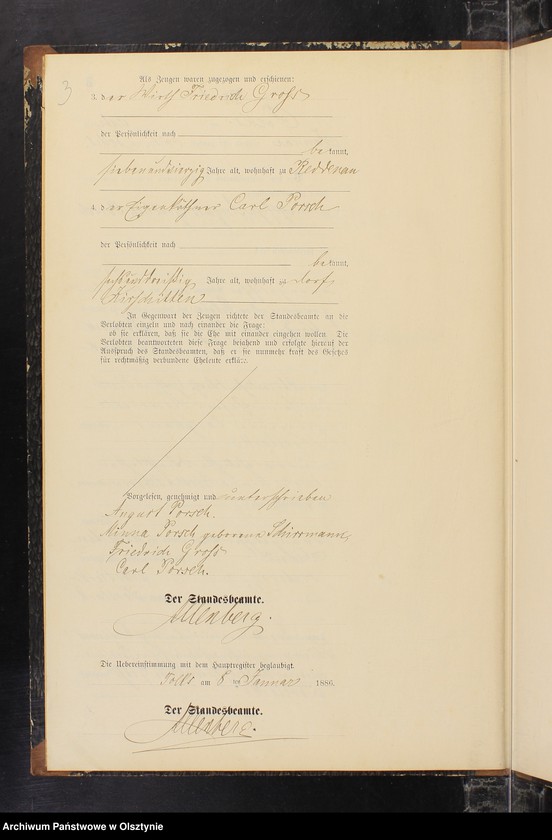 3
Als Zeugen waren zugezogen und erschienen:
3. der Wirth Friedrich Groß
der Persönlichkeit nach
bekannt,
siebenundvierzig Jahre alt, wohnhaft zu Reddenau
4. der Eigenkäthner Carl Porsch
der Persönlichkeit nach
bekannt,
sechsunddreißig Jahre alt, wohnhaft zu Dorf
In Gegenwart der Zeugen richtete der Standesbeamte an die
Verlobten einzeln und nach einander die Frage:
ob sie erklären, daß sie die Ehe mit einander eingehen wollen. Die
Verlobten beantworteten diese Frage bejahend und erfolgte hierauf der
Ausspruch des Standesbeamten, daß er sie nunmehr kraft des Gesetzes
für rechtmäßig verbundene Eheleute erkläre.
Vorgelesen, genehmigt und unterschrieben
August Porsch.
Minna Porsch geborene Schirrmann,
Friedrich Groß
Carl Porsch.
Der Standesbeamte.
Allenberg.
Die Uebereinstimmung mit dem Hauptregister beglaubigt.
Tolks am 8ten Januar 1886.
Der Standesbeamte.
Allenberg.
Archiwum Państwowe w Olsztynie